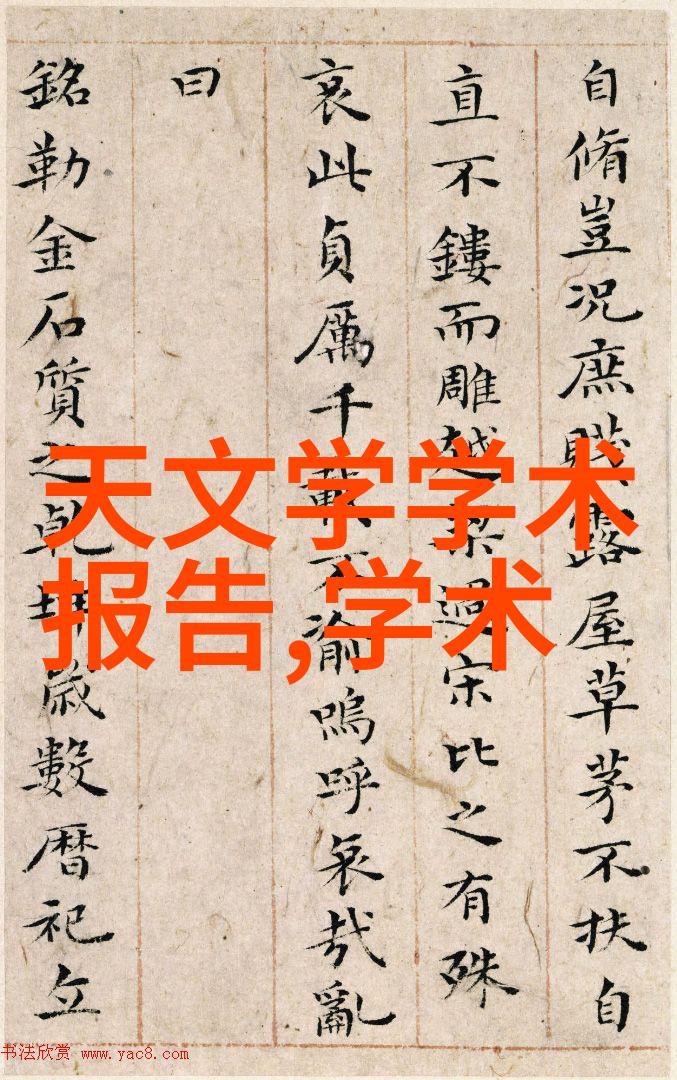 自脩豈况庶賤露屋草茅不扶自
直不鏤而雕越梁過宋比之有殊
哀此貞厲千載不渝嗚呼哀哉亂
曰
銘勒金石質之乾坤歲數暦祀立
天文学学术
报告,学术
书法欣赏 www.yac8.com